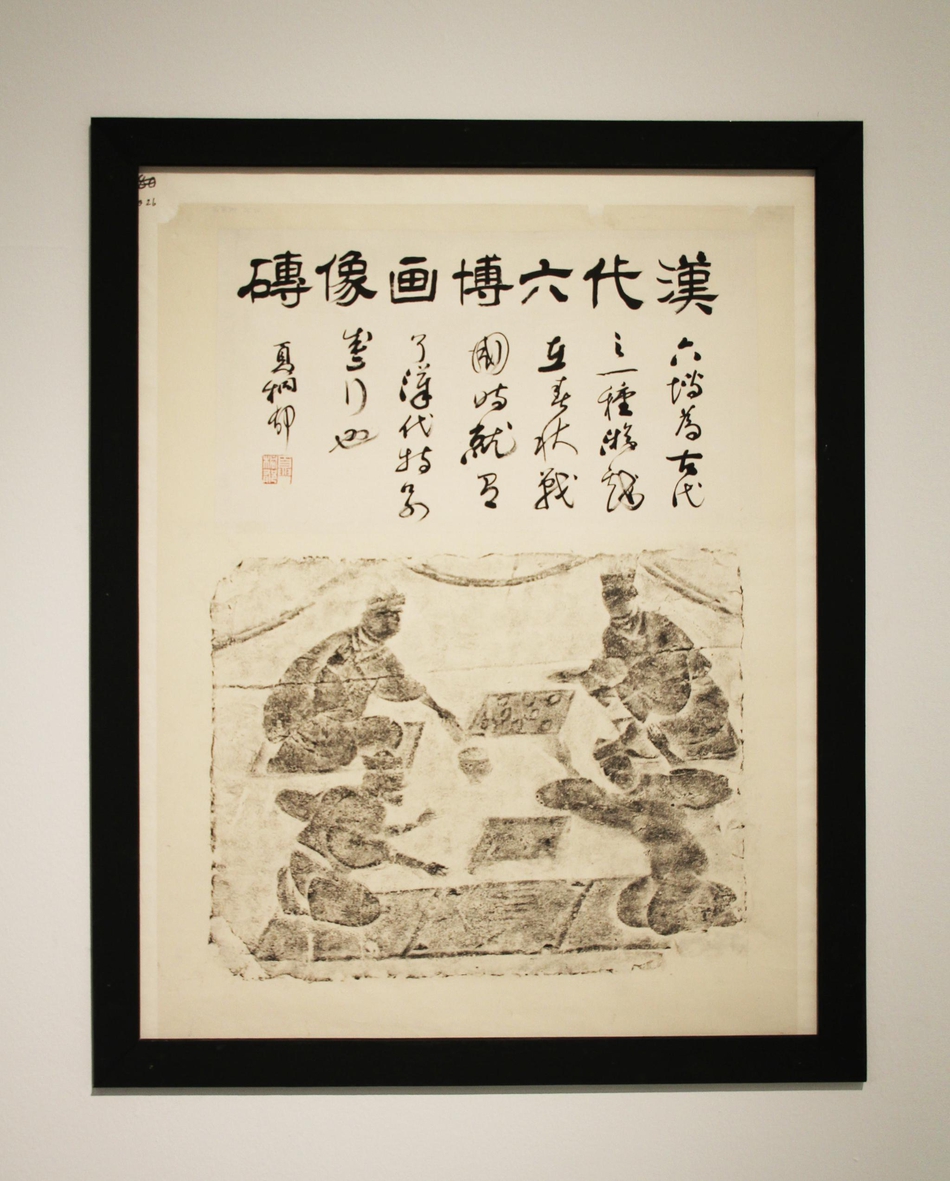 漢代六博画像磚
六博為古代
之一種游戲
在春秋戰
國時就有
了漢代特別
盛行也
夏桐郁
26